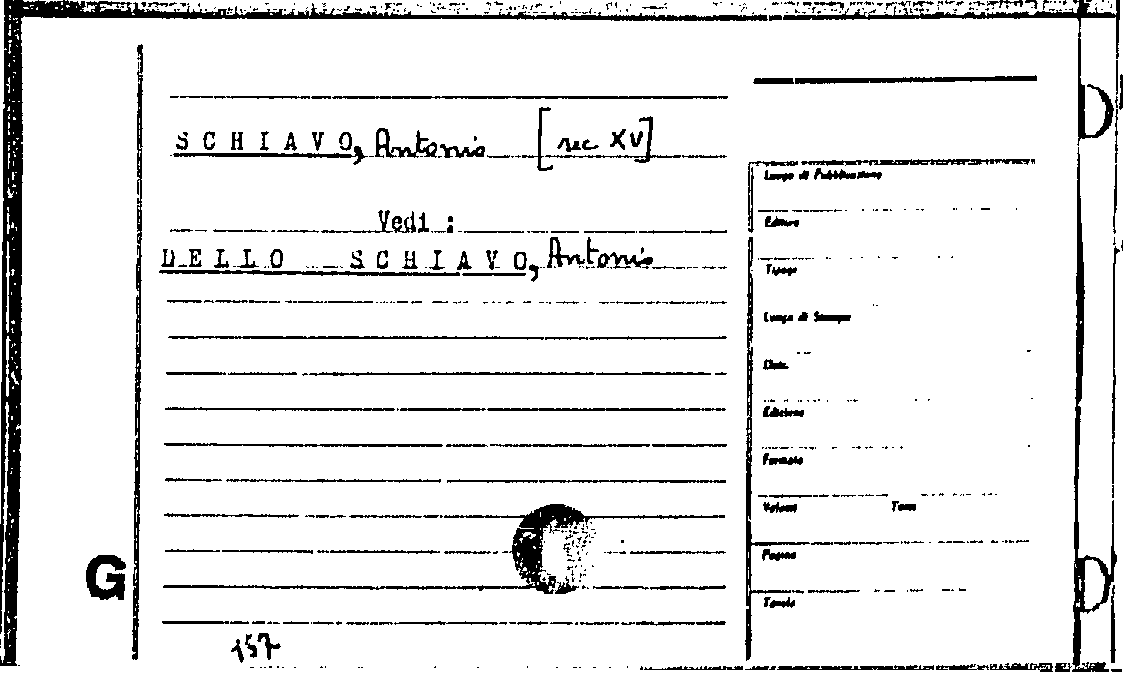 SCHIAVO, Antonio [sec XV]
Vedi :
DELLO SCHIAVO, Antonio
Luogo di Pubblicazione
Editore
Tipogr.
Luogo di Stampa
Data
Edizione
Formato
Volumi Tomi
Pagine
Tavole
G
157